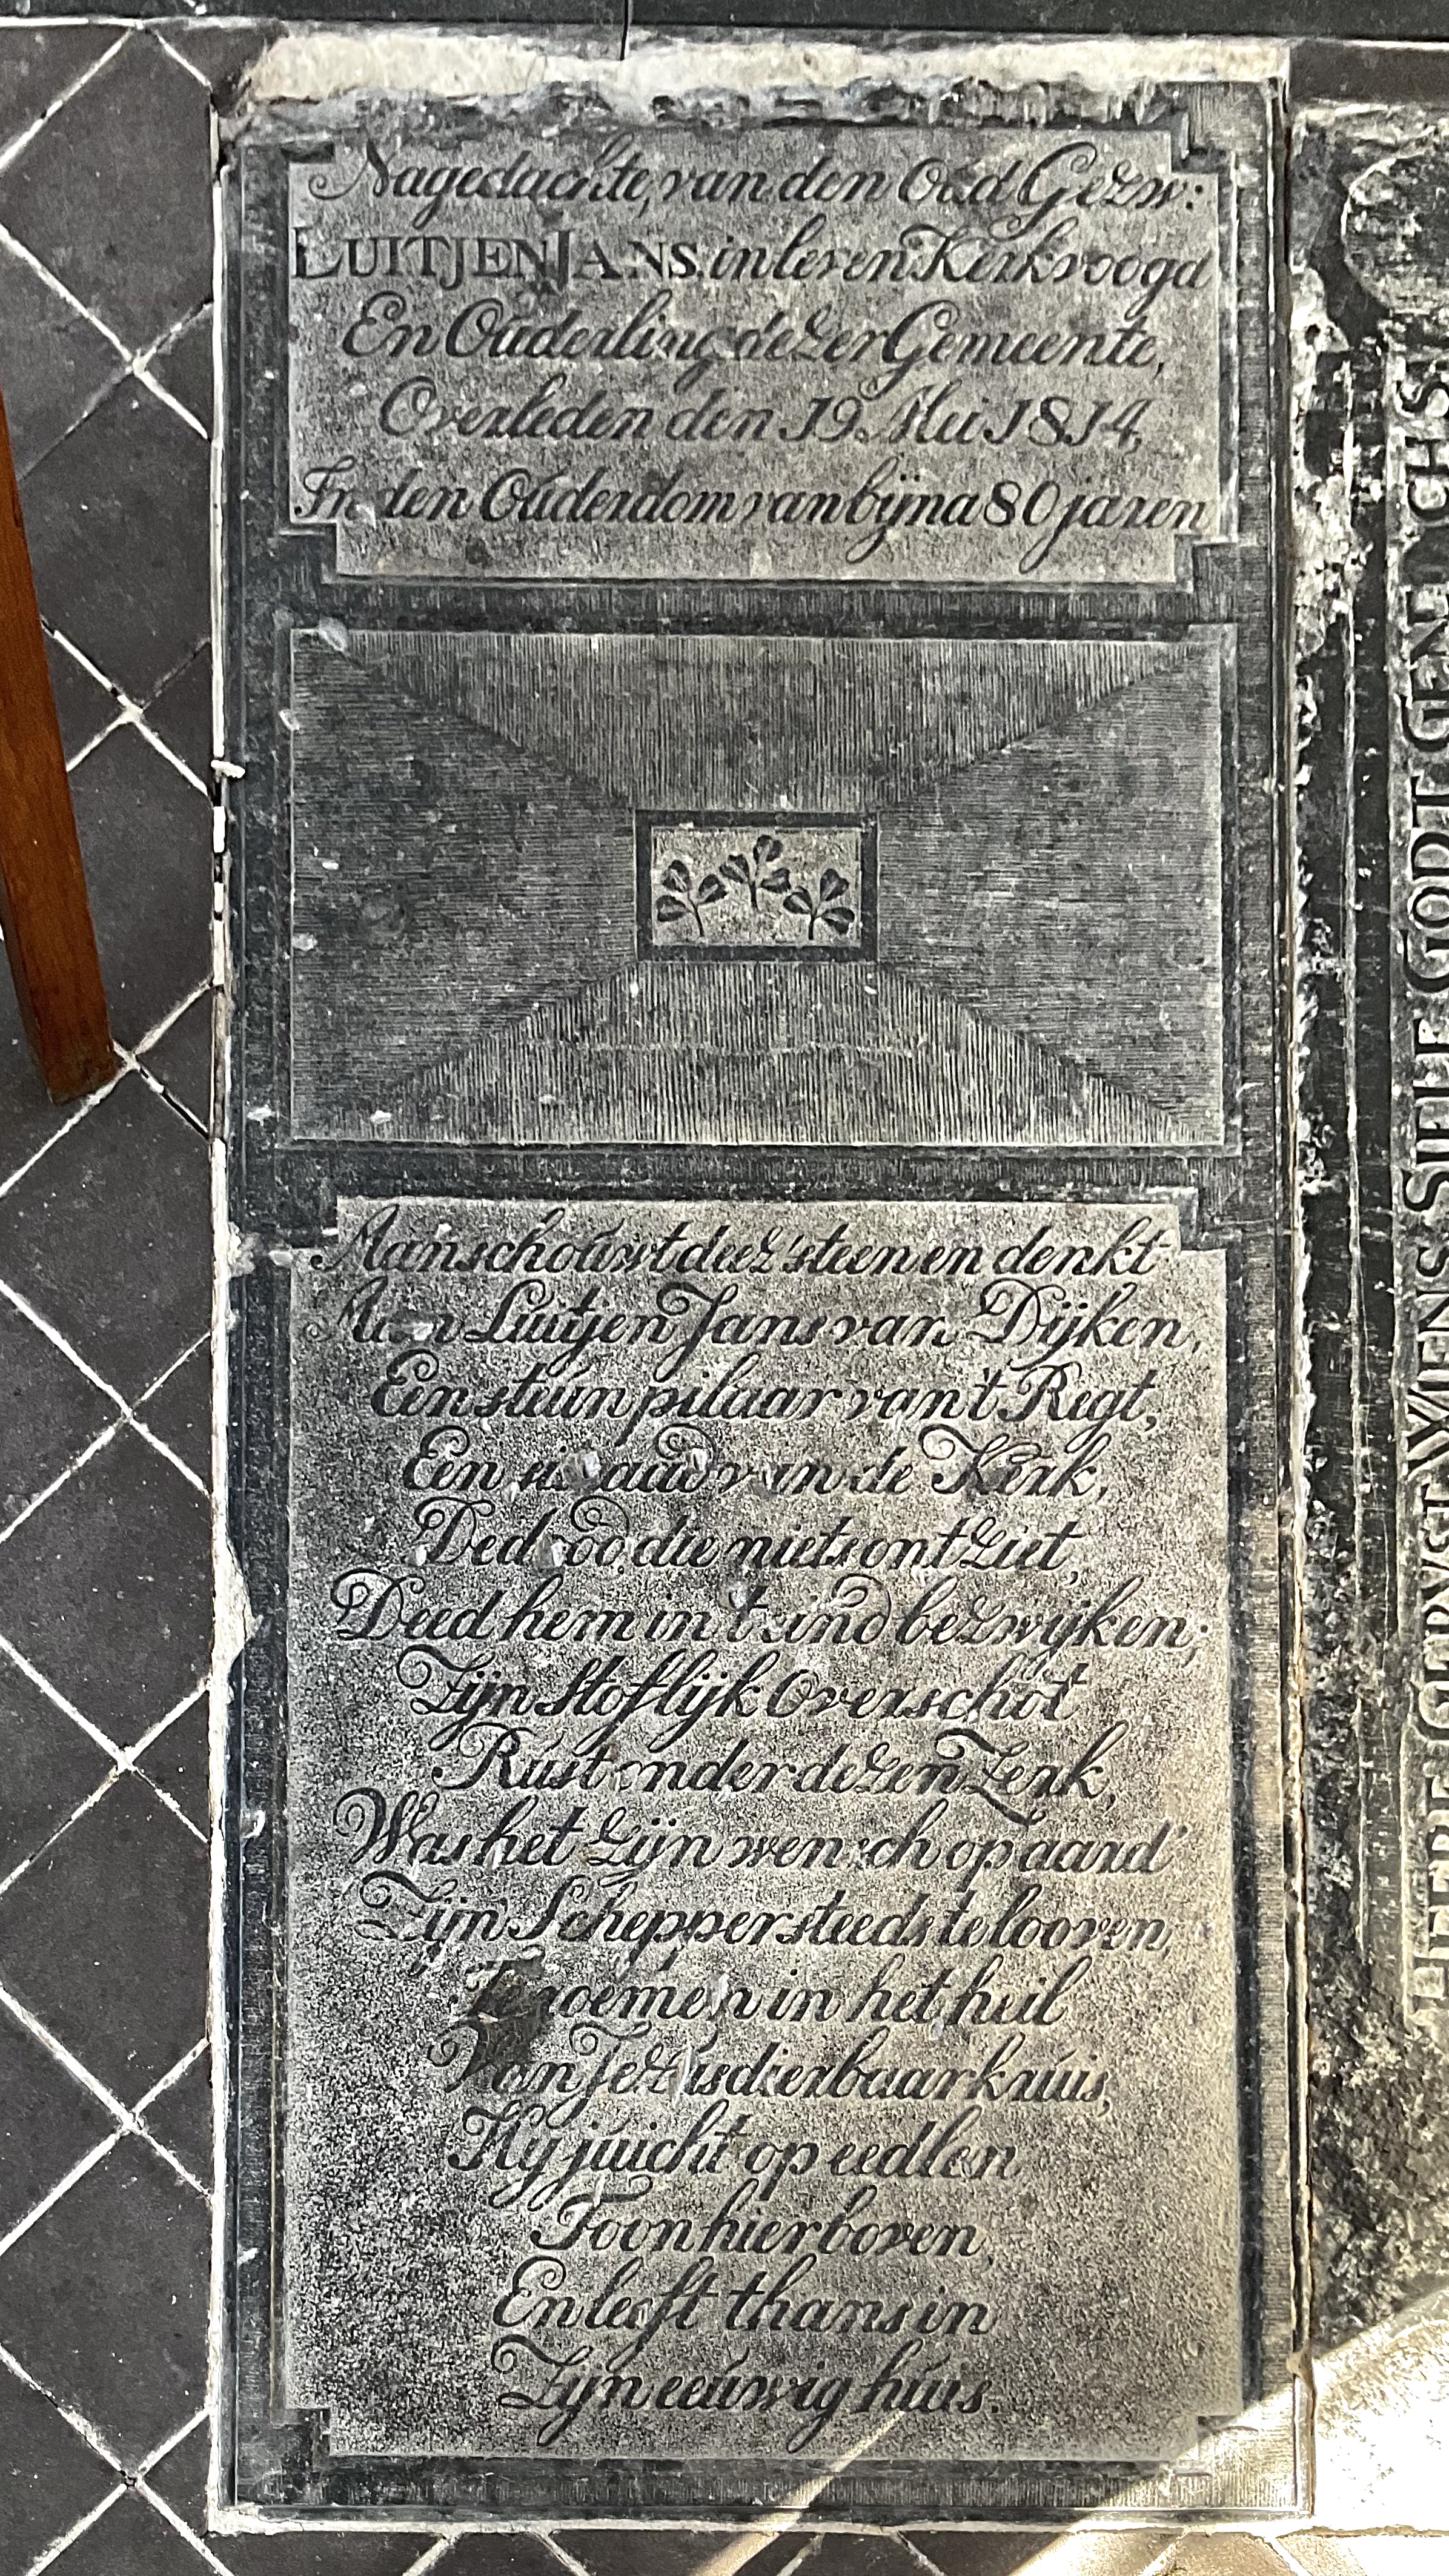 Nagedachte, van den Oud Gezw:
LUITJEN JANS. in leven Kerkvoogd
En Ouderling dezer Gemeente,
Overleden den 19. Mei 1814,
In den Ouderdom van bijna 80 jaren
Aanschouwt deez' steen en denkt
Aan Luitjen Jans van Dijken,
Een steunpilaar van't Regt,
Een sieraad van de Kerk,
De dood die niets ontziet,
Deed hem in 't eind bezwijken;
Zijn stoflijk Overschot
Rust onder dezen Zerk,
Was het zijn wensch op aard'
Zijn Schepper steeds te looven,
Te roemen in het heil
Van Jezus dierbaar kruis,
Hij juicht op eedlen
Toon hier boven,
En leeft thans in
Zijn eeuwig huis.
HEERE GODT GEN ACHS
SIELE
WIENS